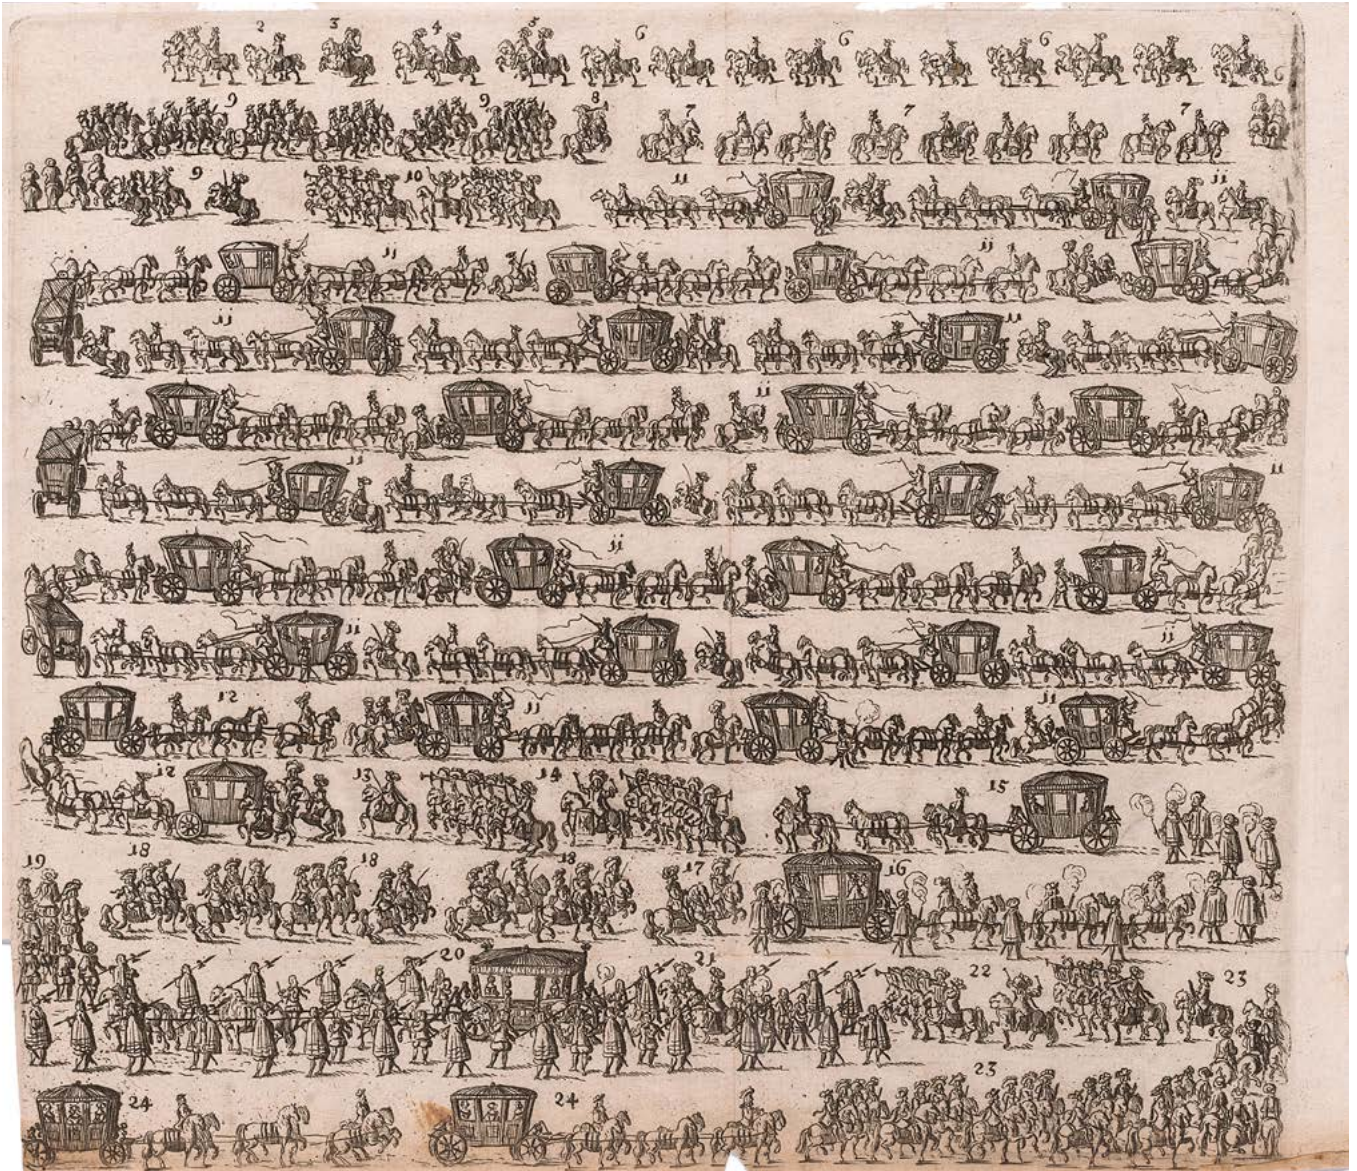 2 3 4 5 6 6 6 6
9 9 8 7 7 7
9 10 11 11
11 11
11 11
11
11 11
11 11
11 11
12 11 11
12 13 14 15
19 18 18 18 17 16
20 21 22 23
24 24 23